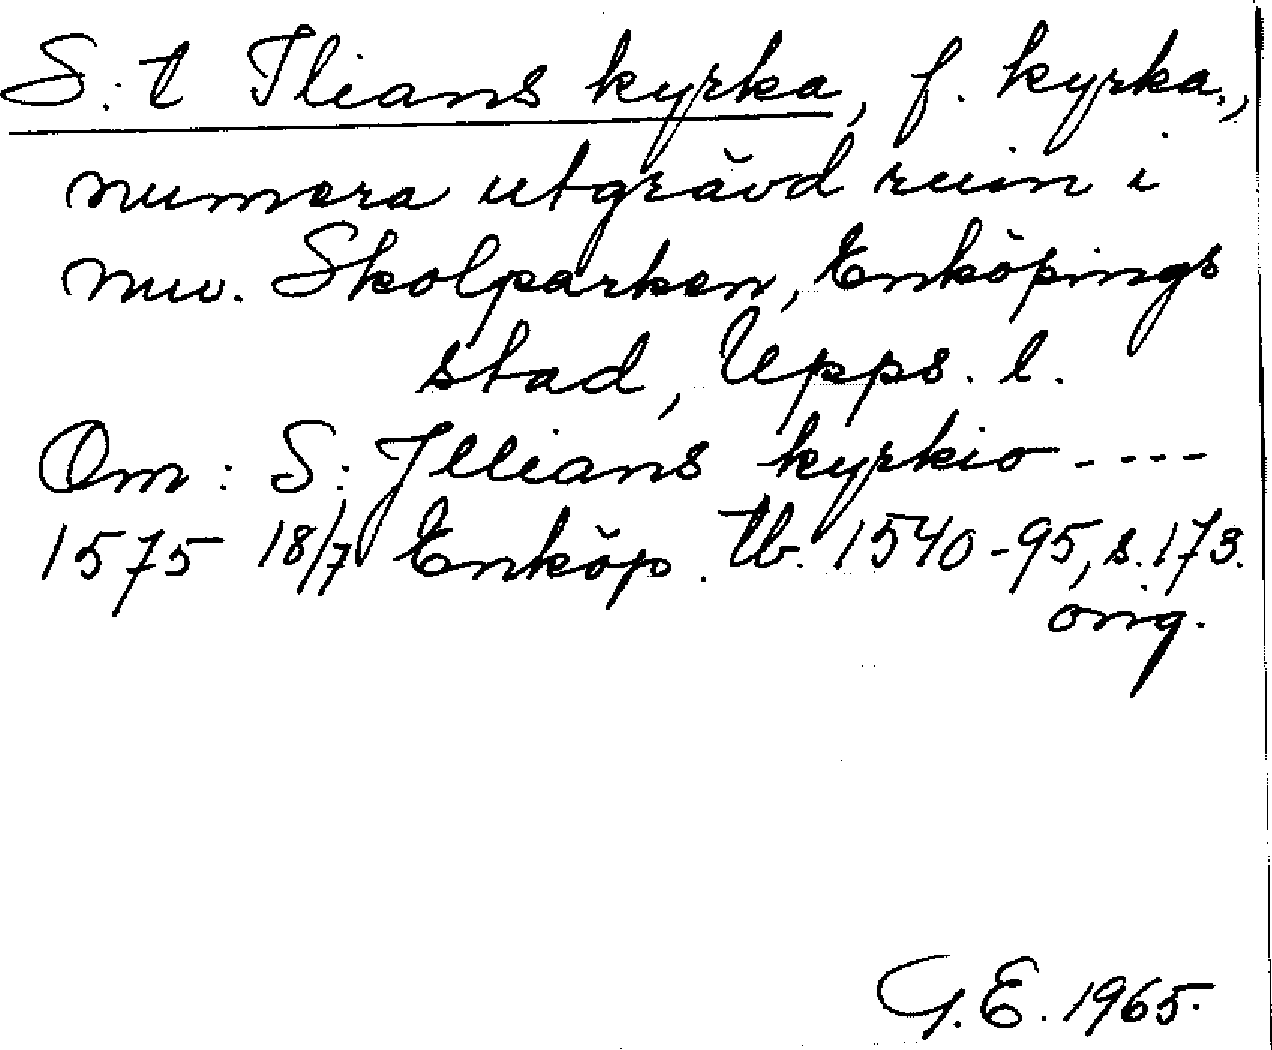 S:t Ilians kyrka, f. kyrka,
numera utgrävd ruin i
nuv. Skolparken, Enköpings
stad, Upps. l.
Om: S: Jllians kyrkio ----
1575 18/7 Enköp. tb. 1540-95, s. 173.
orig.
G. E. 1965.